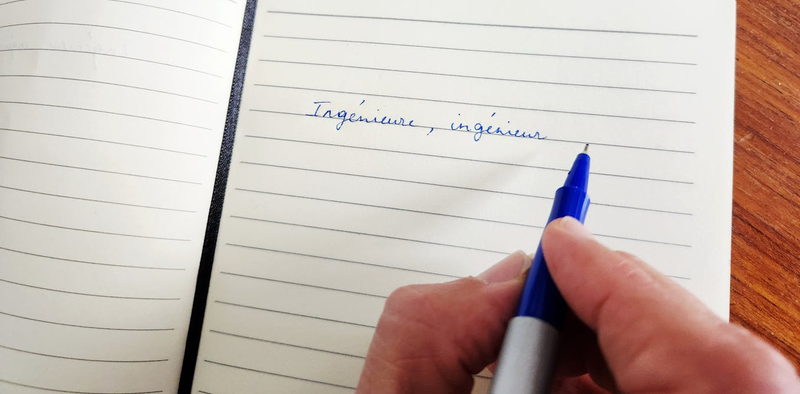 Ingénieure, ingénieur